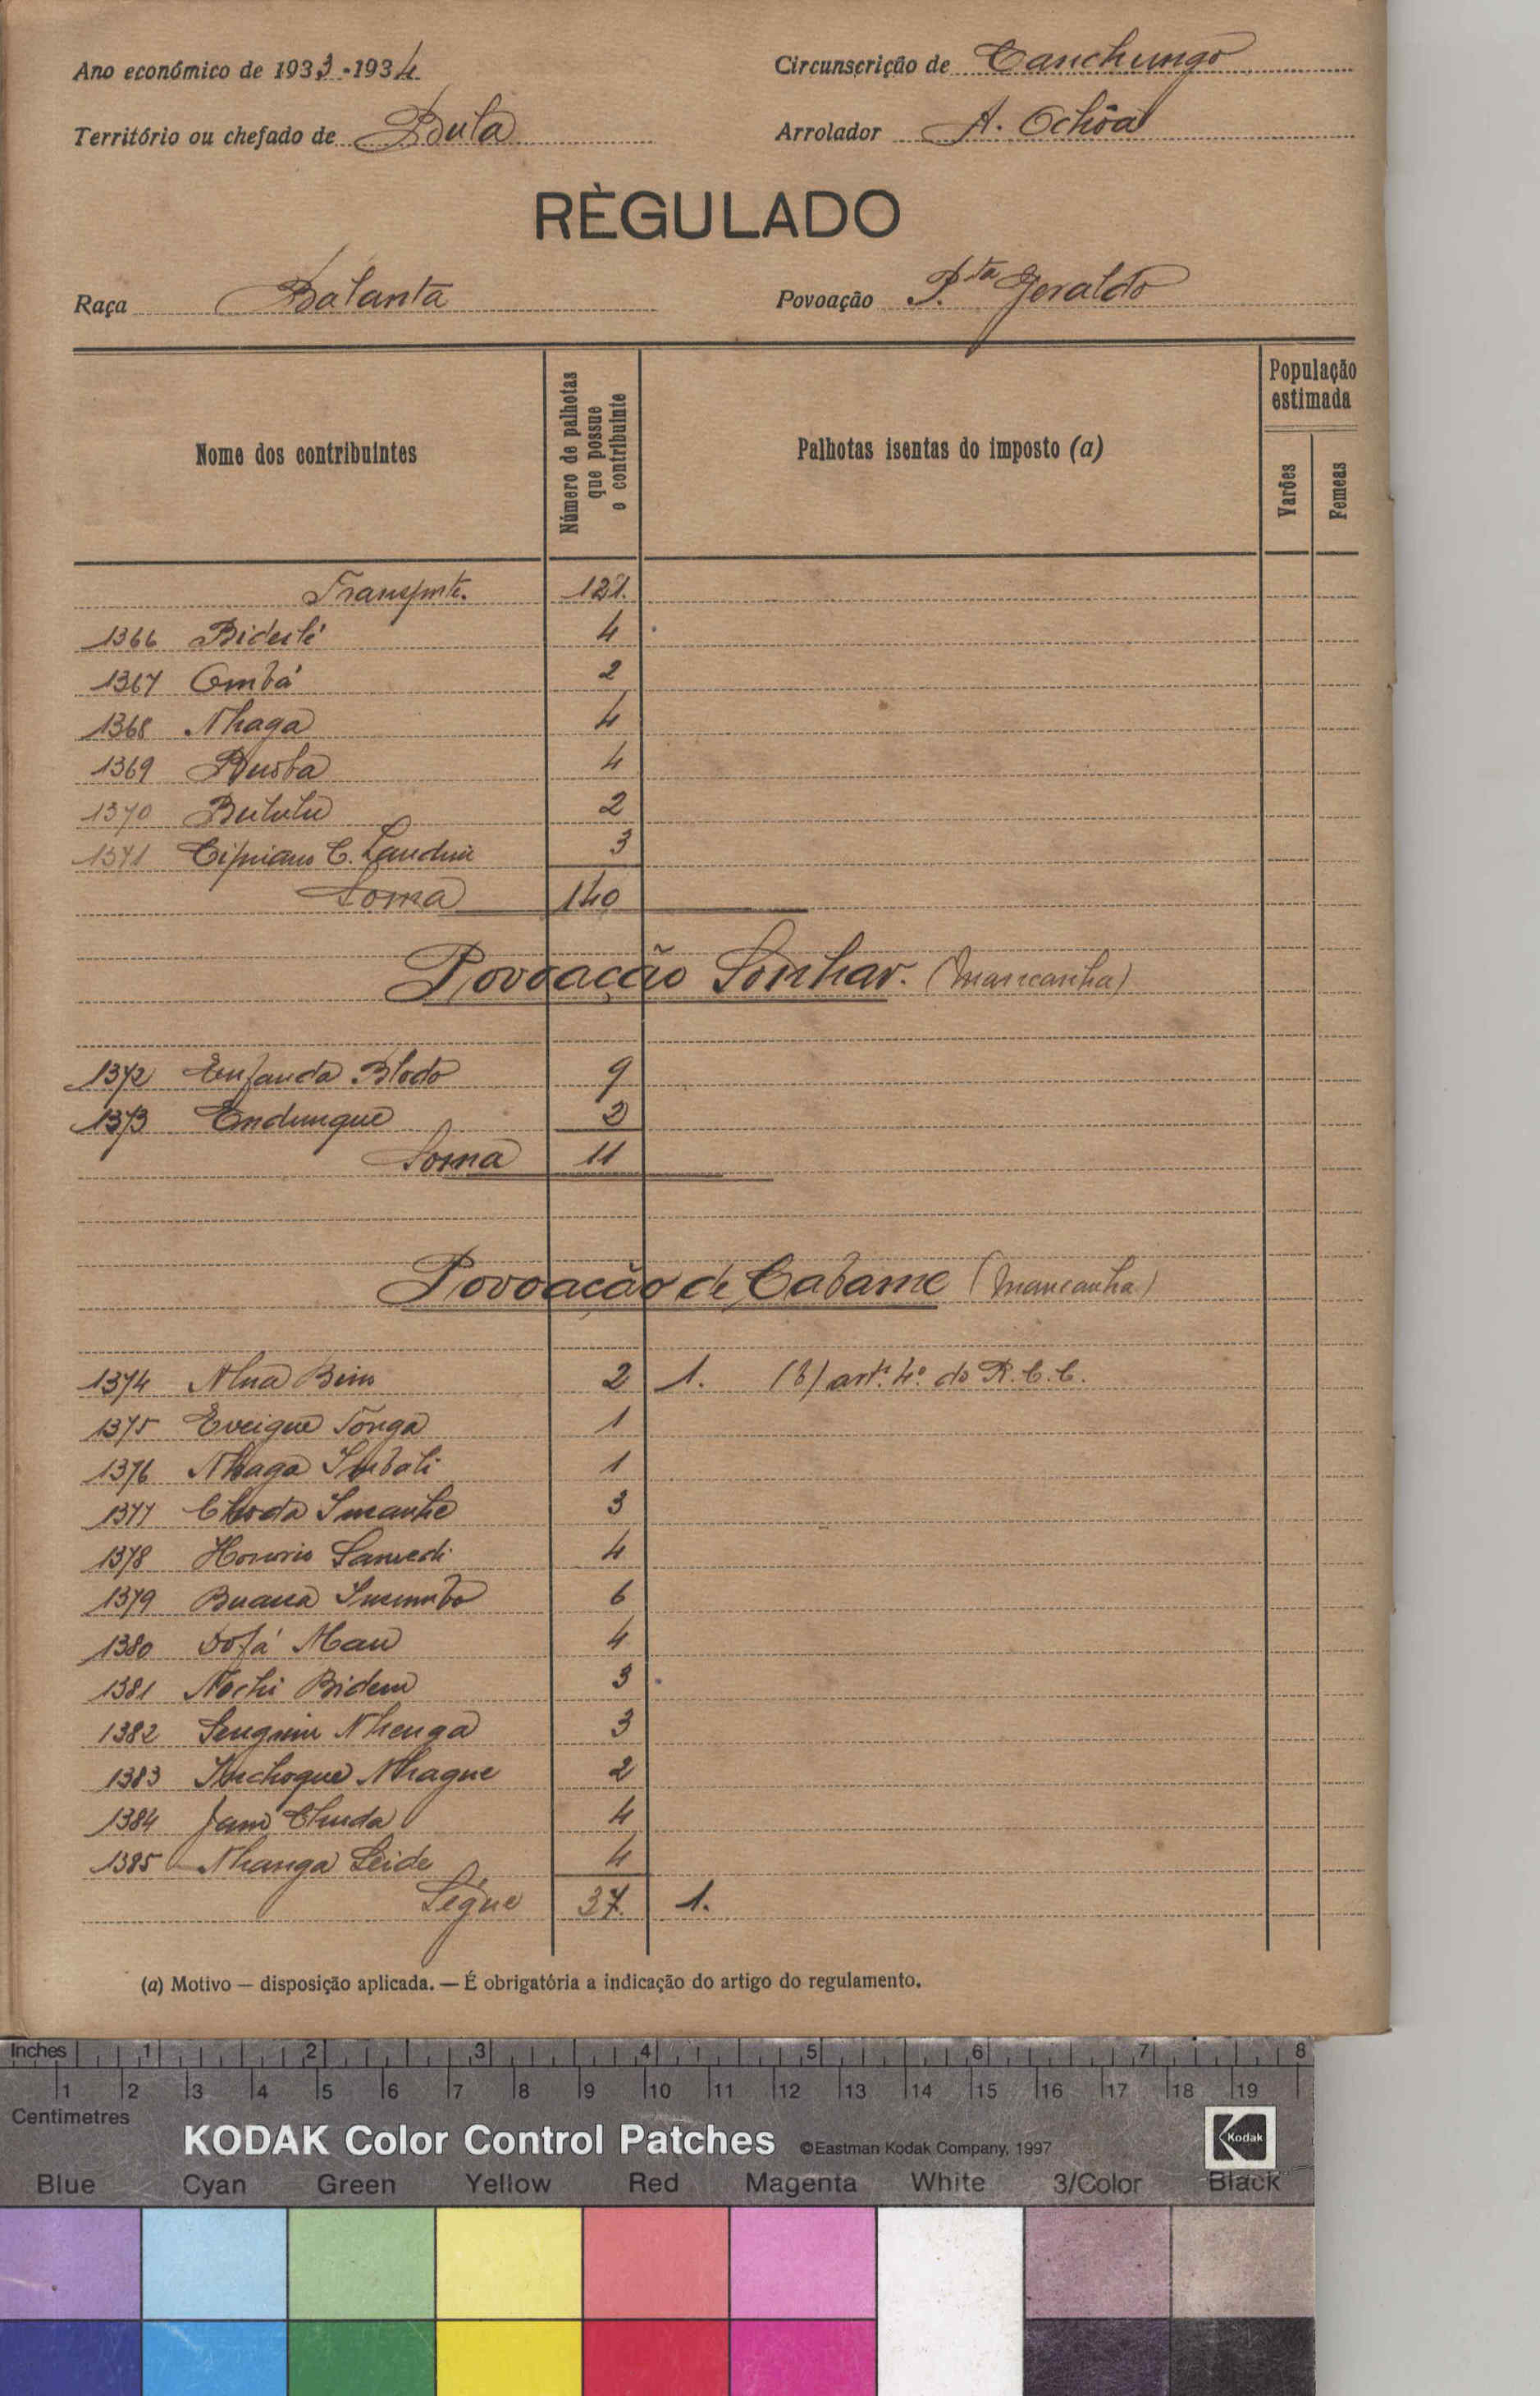 Ano económico de 1933-1934 Circunscrição de Canchungo
Território ou chefado de Bula Arrolador A. Ochôa
RÈGULADO
Raça Balanta Povoação P.ta Geraldo
Nome dos contribuintes
Número de palhotas que possue o contribuinte
Palhotas isentas do imposto (a)
População estimada
Varões
Femeas
Transporte. 121.
1366 4
1367 Ombá 2
1368 Nhaga 4
1369 4
1370 Bululu 2
1371 Cipriano C. Landim 3
Soma 140
Povoação Sonhar. (Mancanha)
1372 Enfanda Blodo 9
1373 Endungue 2
Soma 11
Povoação de Cabame (Mancanha)
1374 2 1. (b) art.º 4.º do R. C. C.
1375 Tonga 1
1376 Nhaga 1
1377 3
1378 Honorio 4
1379 6
1380 Dofá Mau 4
1381 Nochi Bidem 3
1382 Nhenga 3
1383 Inchoque Nhague 2
1384 Chuda 4
1385 Nhanga Leide 4
Segue 37. 1.
(a) Motivo — disposição aplicada. — É obrigatória a indicação do artigo do regulamento.
Inches 1 2 3 4 5 6 7 8
1 2 3 4 5 6 7 8 9 10 11 12 13 14 15 16 17 18 19
Centimetres
KODAK Color Control Patches ©Eastman Kodak Company, 1997 Kodak
Blue Cyan Green Yellow Red Magenta White 3/Color Black